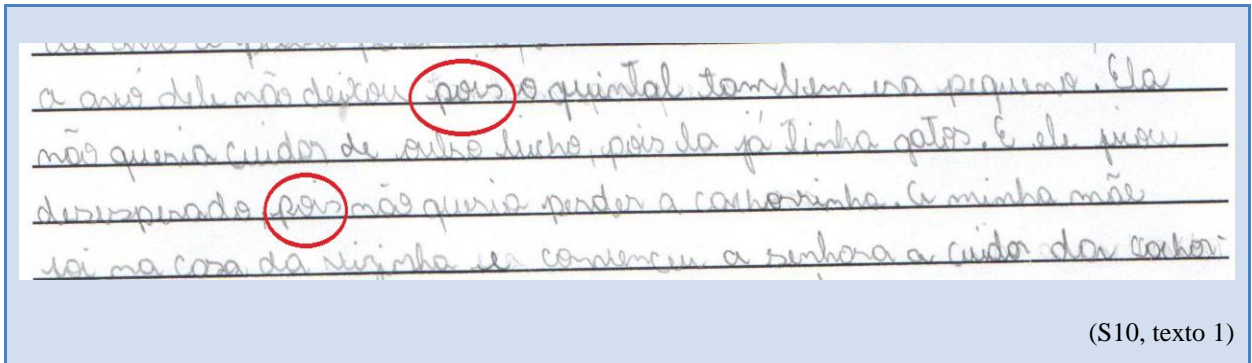 a avó dele não deixou pois o quintal tambem era pequeno. Ela
não queria cuidar de outro bicho, pois la já tinha gatos. E ele ficou
desesperado pois não queria perder a cachorrinha. A minha mãe
foi na casa da vizinha e convenceu a senhora a cuidar da cachor-
(S10, texto 1)